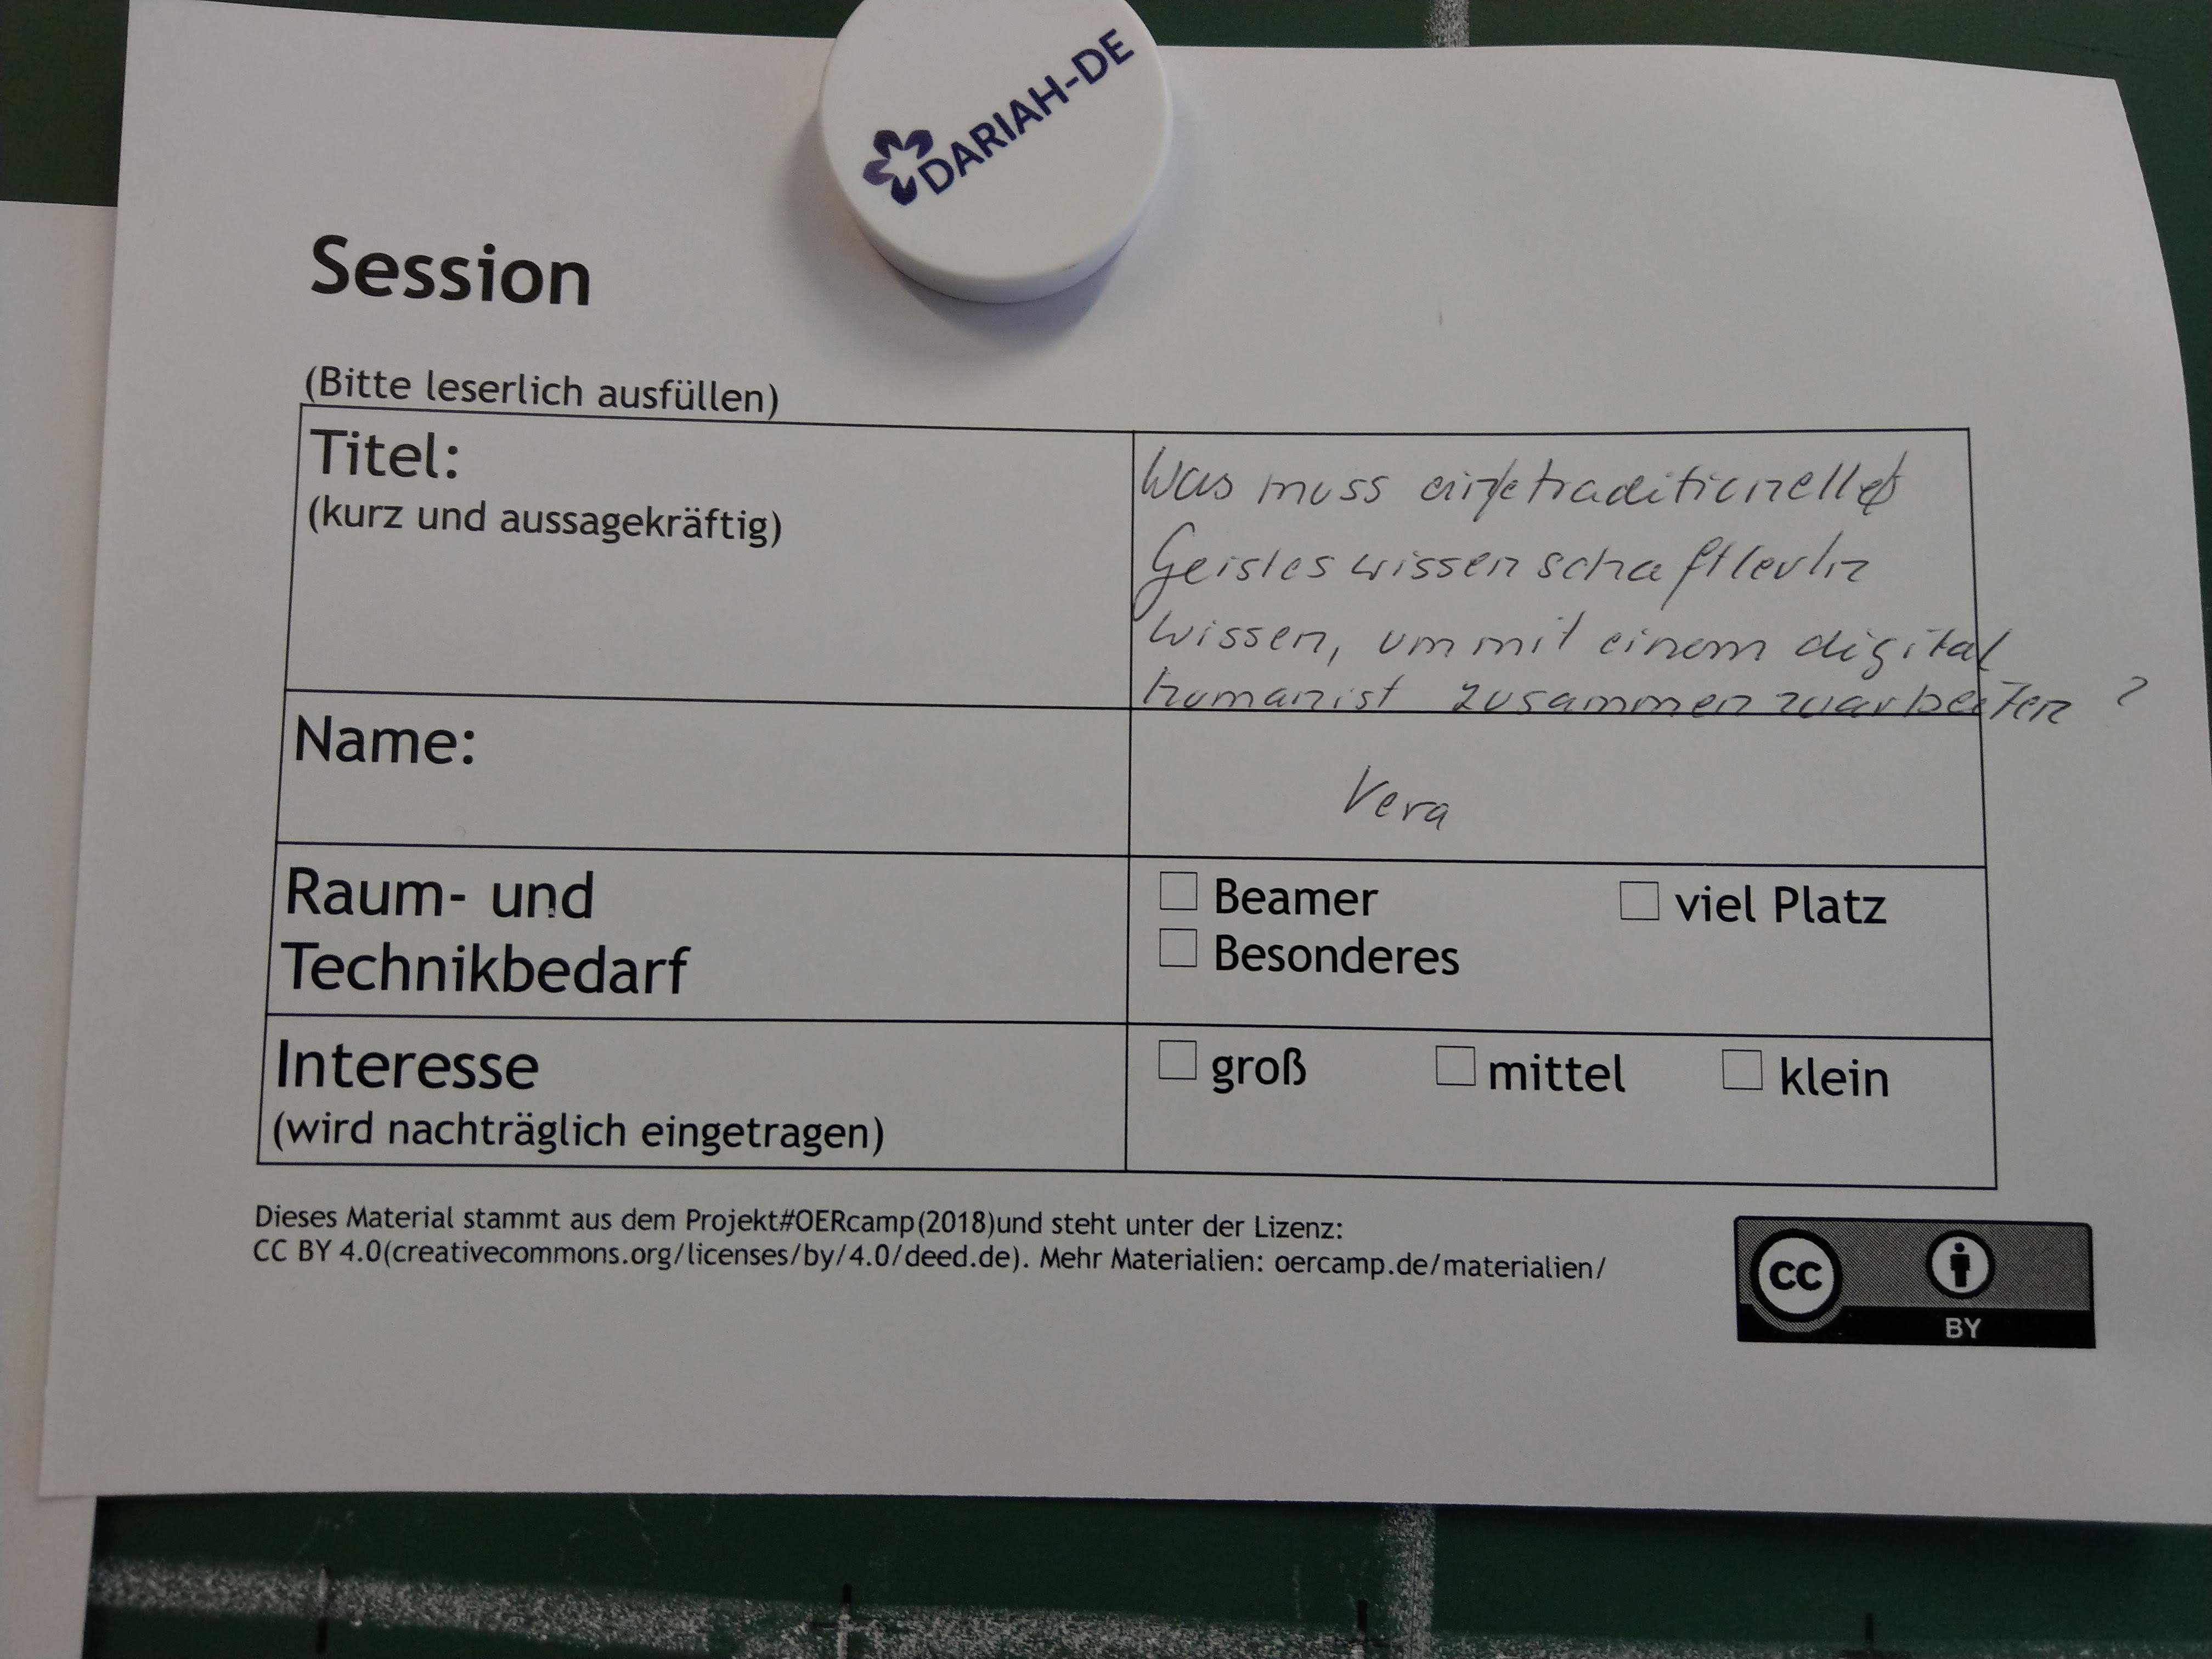 DARIAH-DE
Session
(Bitte leserlich ausfüllen)
Titel:
(kurz und aussagekräftig)
Was muss eine traditionelle
GeisteswissenschaftlerIn
wissen, um mit einem digital
humanist zusammenzuarbeiten ?
Name:
Vera
Raum- und
Technikbedarf
Beamer
viel Platz
Besonderes
Interesse
(wird nachträglich eingetragen)
groß
mittel
klein
Dieses Material stammt aus dem Projekt#OERcamp(2018)und steht unter der Lizenz:
CC BY 4.0(creativecommons.org/licenses/by/4.0/deed.de). Mehr Materialien: oercamp.de/materialien/
cc
BY